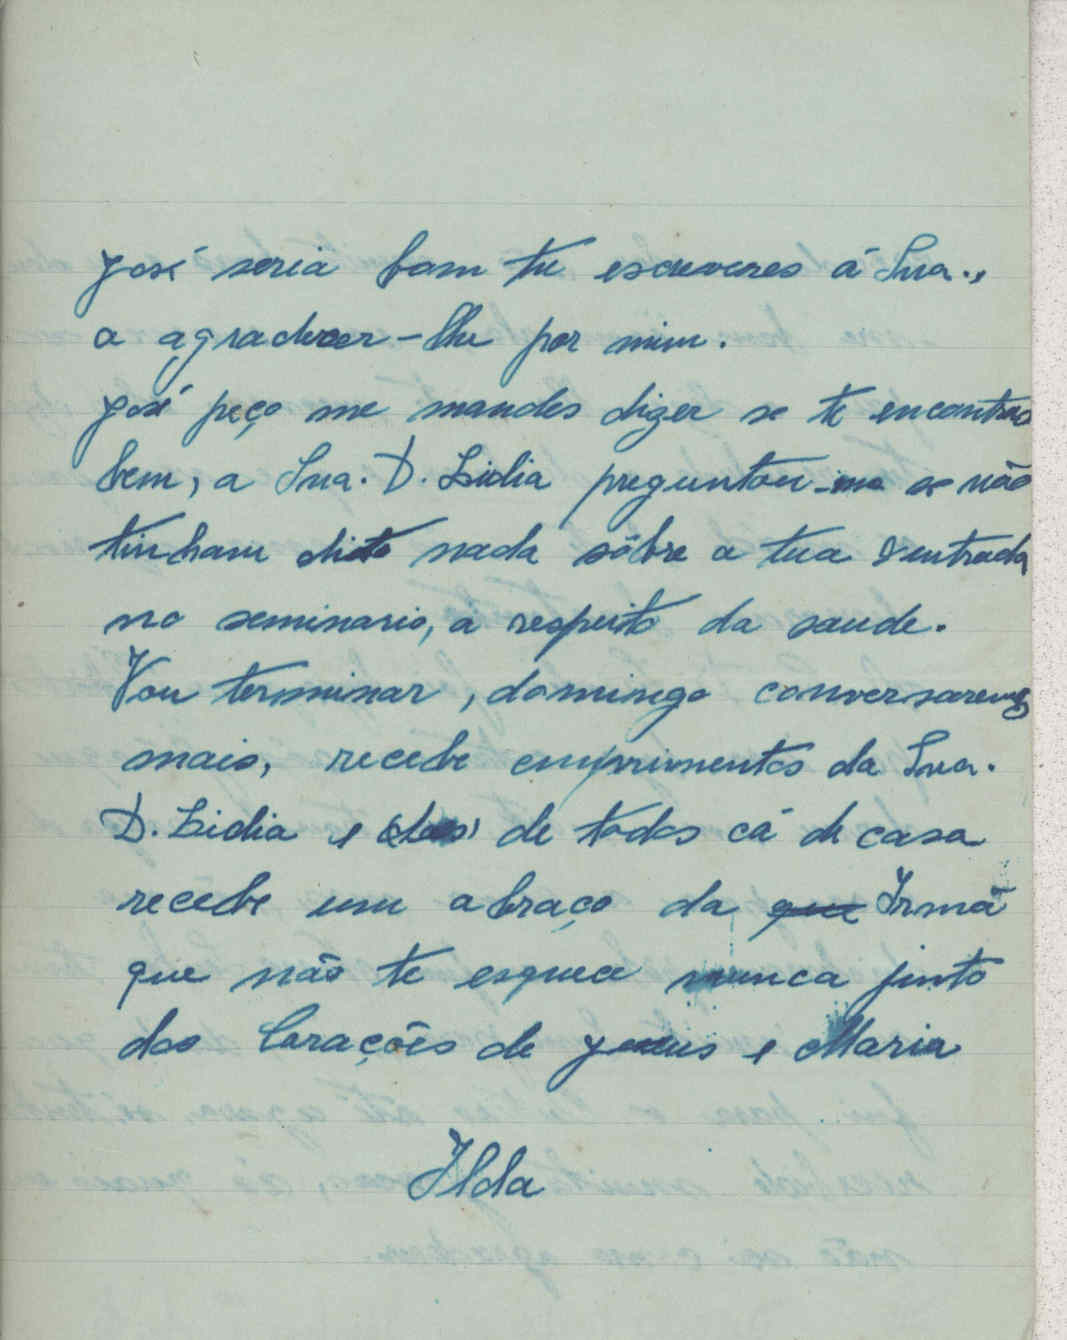 José seria bom tu escreveres á Sna.,
a agradecer-lhe por mim.
José peço me mandes dizer se te encontras
bem, a Sna. D. Lidia preguntou-me se não
tinham dito nada sôbre a tua entrada
no seminario, a respeito da saude.
Vou terminar, domingo conversaremos
mais, recebe cumprimentos da Sna.
D. Lidia e de todos cá de casa
recebe um abraço da que Irmã
que não te esquece nunca junto
dos Corações de Jesus e Maria
Ilda